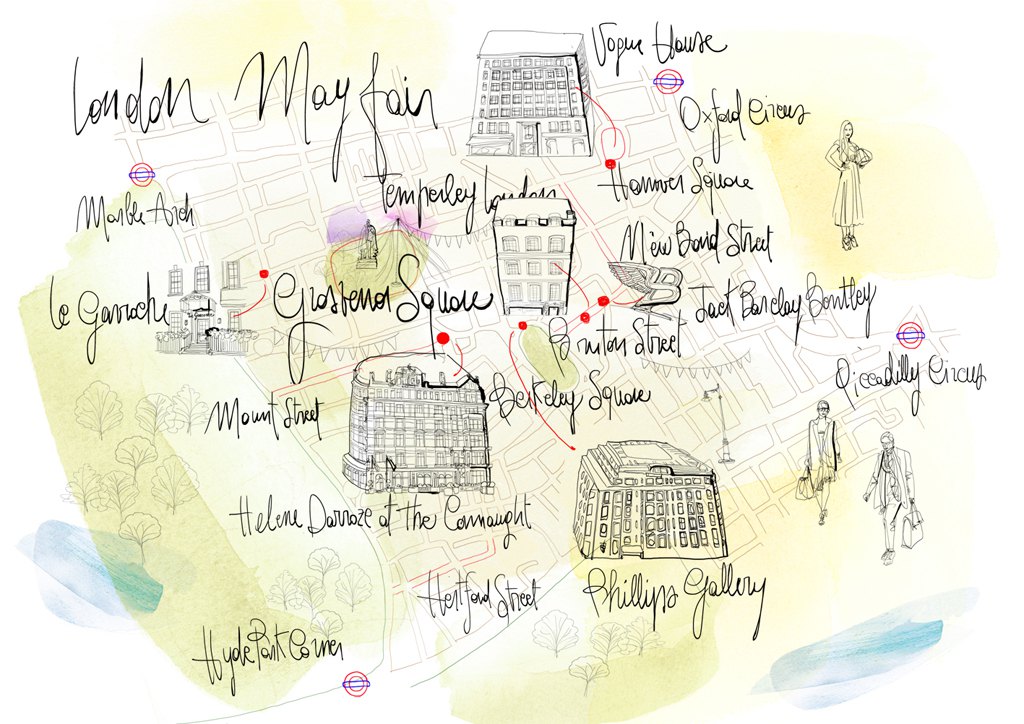 London Mayfair
Vogue House
Oxford Circus
Marble Arch
Temperley London
Hannover Square
New Bond Street
Le Gavroche
Grosvenor Square
Jack Barclay Bentley
Bruton Street
Piccadilly Circus
Mount Street
Berkeley Square
Helene Darroze at The Connaught
Hertford Street
Phillips Gallery
Hyde Park Corner